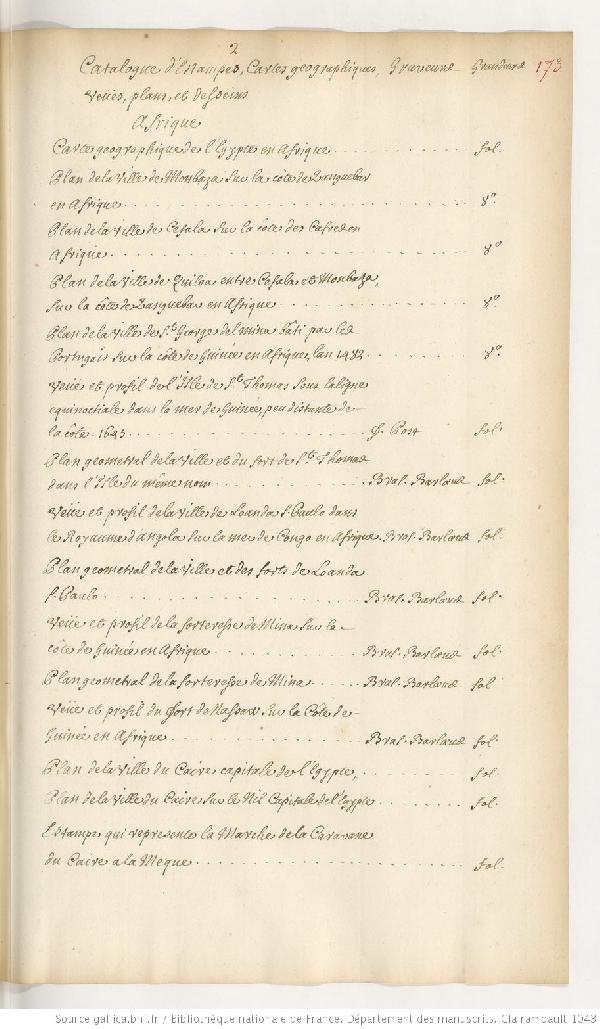 2
Catalogue d'Estampes, Cartes geographiques, Graveures Grandeurs 173.
Veües, plans, et desseins
Afrique
Carte geographique de l'Egypte en Afrique .......... fol.
Plan de la Ville de Monbaza Sur la côte de Zanguebar
en Afrique .......... 8°.
Plan de la Ville de Cefala Sur la côte des Cafres en
Afrique .......... 8°
Plan de la Ville de Quiloa entre Cefala et Monbaza,
Sur la côte de Zanguebar en Afrique .......... 8°.
Plan de la Ville de St. George del mina bâti par les
Portugais Sur la côte de Guinée en Afrique, l'an 1482 .......... 8°.
Veüe et profil de l'Isle de St. Thomas Sous la ligne
equinoctiale dans la mer de Guinée, peu distante de
la côte 1645 .......... f. Post fol.
Plan geometral de la Ville et du fort de St. Thomas
dans l'Isle du même nom .......... Bras. Barlaeus fol.
Veüe et profil de la Ville de Loanda S. Paulo dans
le Royaume d'angola Sur la mer de Congo en Afrique Bras. Barlaeus fol.
Plan geometral de la Ville et des forts de Loanda
S. Paulo .......... Bras. Barlaeus fol.
Veüe et profil de la forteresse de Mina Sur la
côte de Guinée en Afrique .......... Bras. Barlaeus fol.
Plan geometral de la forteresse de Mina .......... Bras. Barlaeus fol
Veüe et profil du fort de Nassaw Sur la Côte de
Guinée en Afrique .......... Bras. Barlaeus fol.
Plan de la Ville du Caire capitale de l'Egypte, .......... fol.
Plan de la Ville du Caire Sur le Nil Capitale de l'Egypte .......... fol.
Estampe qui represente la Marche de la Caravane
du Caire a la Meque .......... fol.
Source gallica.bnf.fr / Bibliothèque nationale de France. Département des manuscrits. Clairambault 1043